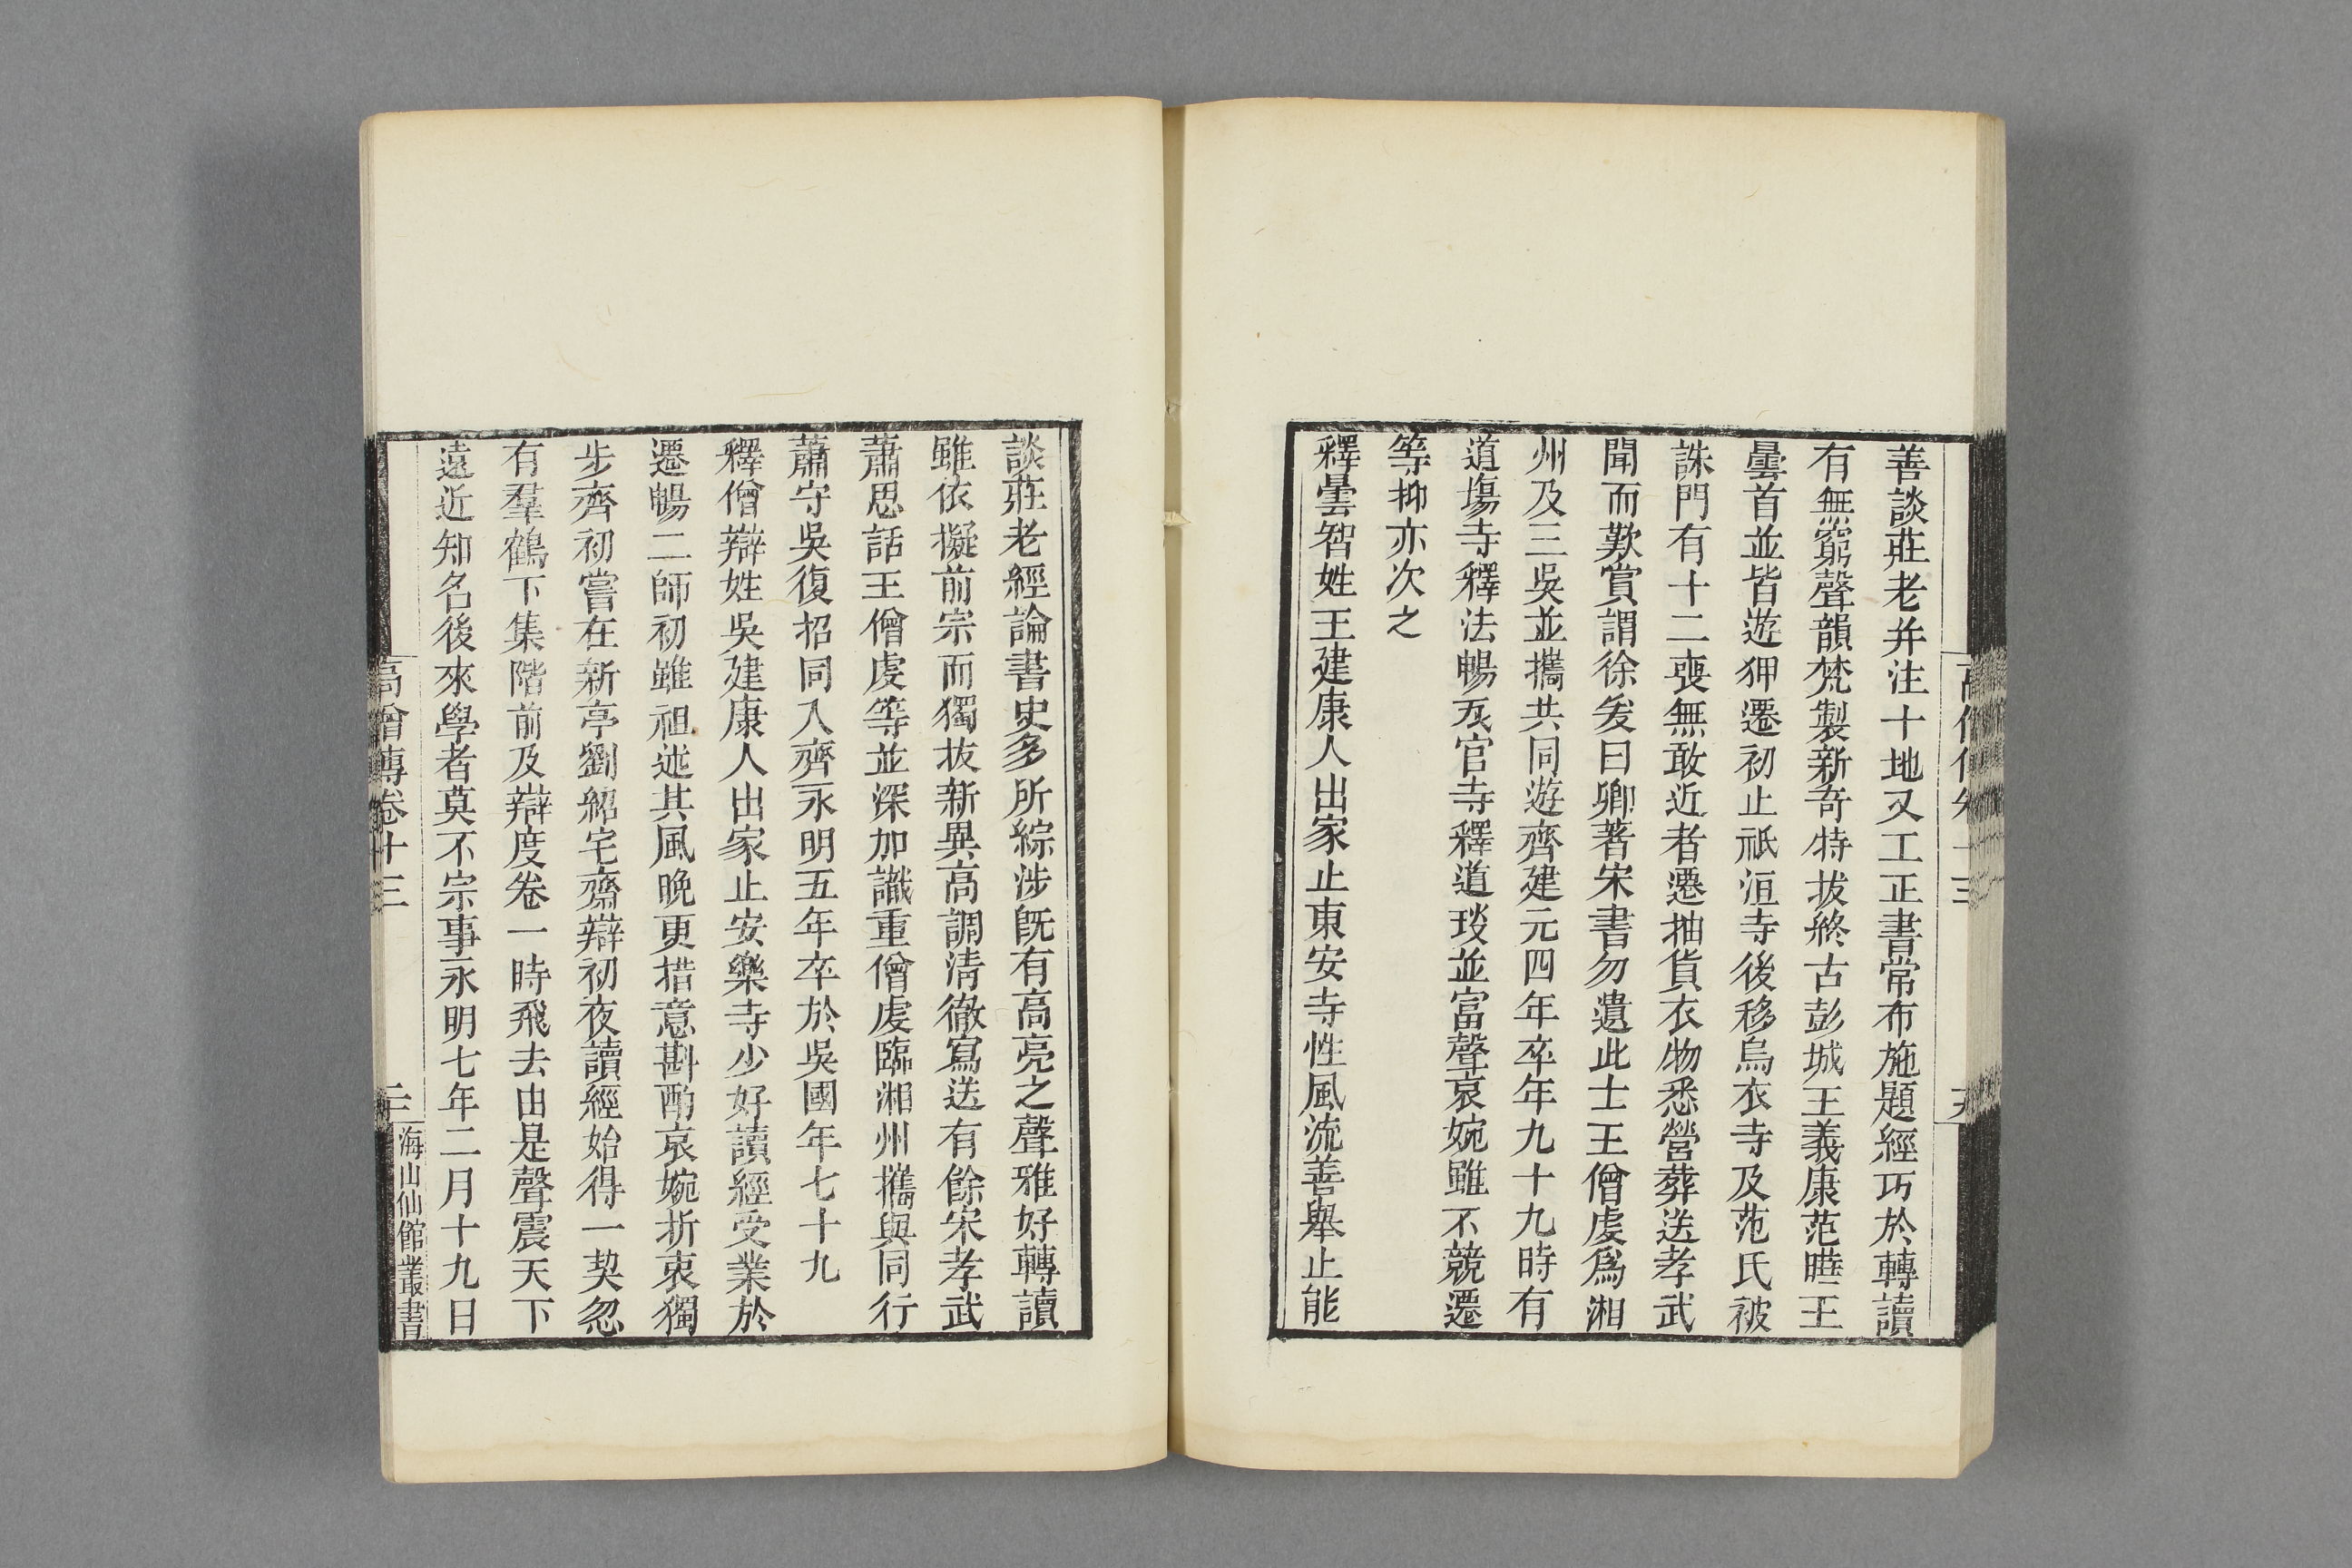 善談莊老并注十地又工正書常布施題經巧於轉讀
有無窮聲韻梵製新奇特拔終古彭城王義康范曄王
曇首並皆遊狎遷初止祇洹寺後移烏衣寺及范氏被
誅門有十二喪無敢近者遷抽貨衣物悉營葬送孝武
聞而歎賞謂徐爰曰卿著宋書勿遺此士王僧虔爲湘
州及三吳並攜共同遊齊建元四年卒年九十九時有
道塲寺釋法暢瓦官寺釋道琰並富聲哀婉雖不競遷
等抑亦次之
釋曇智姓王建康人出家止東安寺性風流善舉止能
談莊老經論書史多所綜涉既有高亮之聲雅好轉讀
雖依擬前宗而獨拔新異高調清徹寫送有餘宋孝武
蕭思話王僧虔等並深加識重僧虔臨湘州攜與同行
蕭守吳復招同入齊永明五年卒於吳國年七十九
釋僧辯姓吳建康人出家止安樂寺少好讀經受業於
遷暢二師初雖祖述其風晚更措意斟酌哀婉折衷獨
步齊初嘗在新亭劉紹宅齋辯初夜讀經始得一契忽
有羣鶴下集階前及辯度卷一時飛去由是聲震天下
遠近知名後來學者莫不宗事永明七年二月十九日
高僧傳卷十三
海山仙館叢書